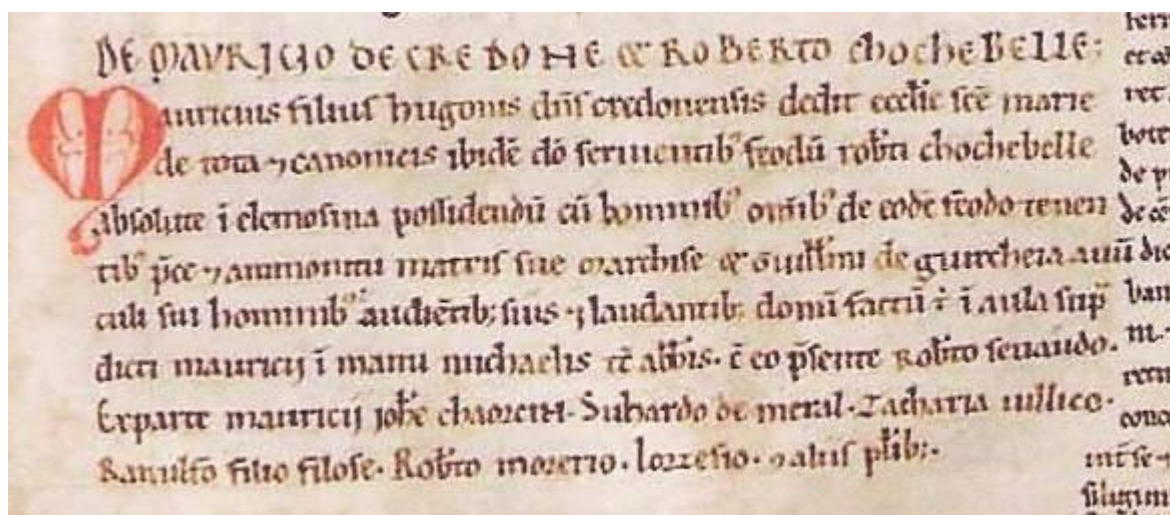 DE MAVRICIO DE CREDONE & ROBERTO chocheBELLE:
Mauricius filius hugonis dn̄s credonensis dedit eccl̄ie sc̄e marie
de rota ⁊ canonicis ibidē dō seruientib᾽ feodū rob̄ti chochebelle
absolute ī elemosina possidendū cū hominib᾽ om̄ib᾽ de eodē feodo tenen
tib᾽ p̄ce ⁊ ammonitu matris sue marchise & Guill̄mi de guircheia auū
culi sui hominib᾽ audiētib; suis ⁊ laudantib; domū factū ē ī aula sup̄
dicti mauricij ī manu michaelis tc̄ abb̄is. c̄ eo p̄sente Rob̄to
Ex parte mauricij joh̄e Suhardo de meral. Zacharia
filio filose. Rob̄to moretio. ⁊ aliis pl̄ib;.
de
m.